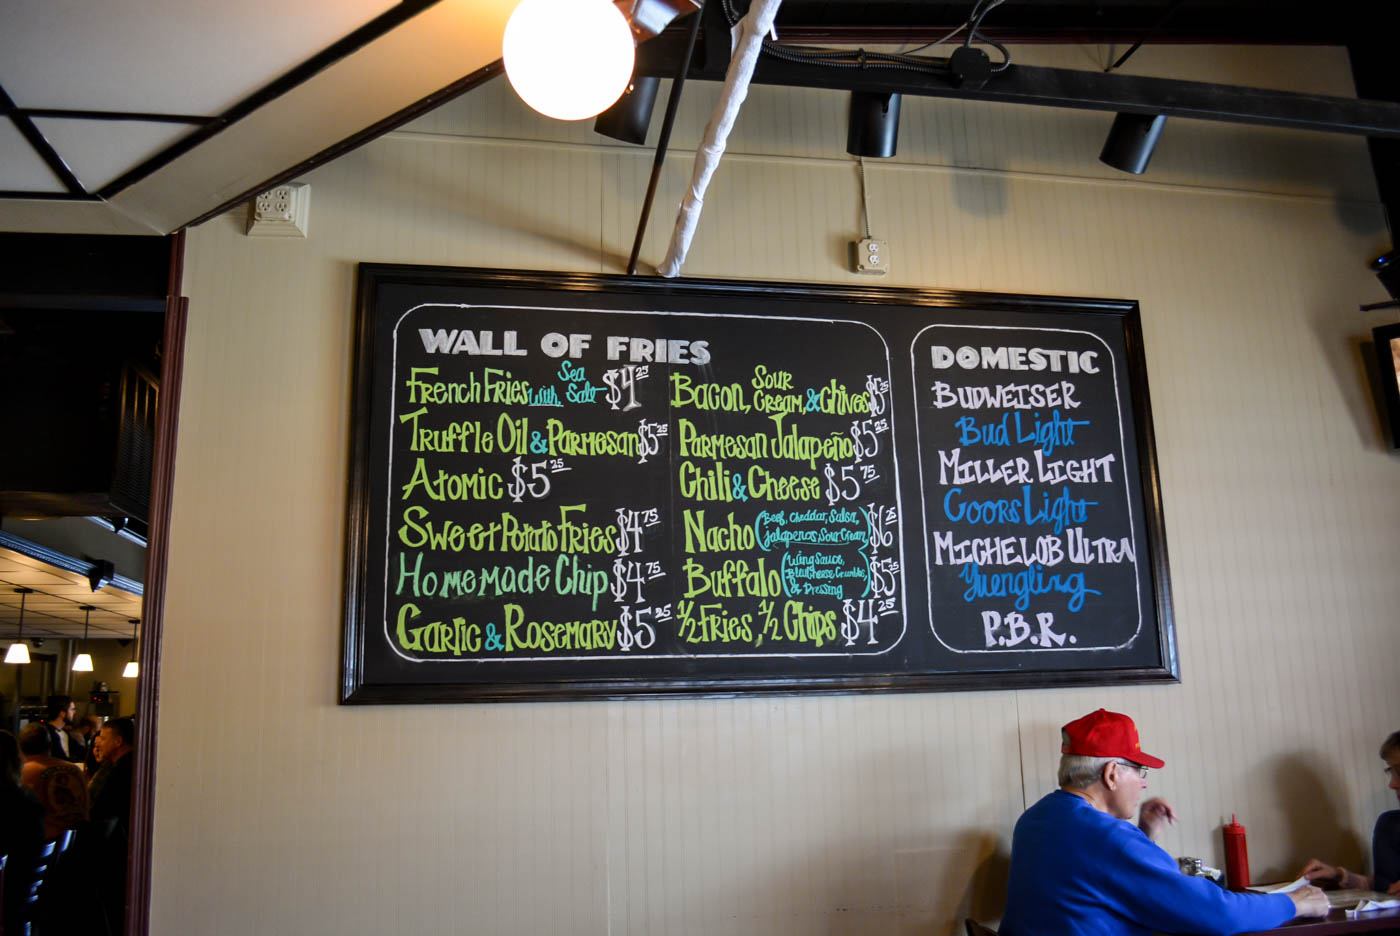 WALL OF FRIES
French Fries with Sea Salt $4.25
Truffle Oil & Parmesan $5.25
Atomic $5.25
Sweet Potato Fries $4.75
Homemade Chip $4.75
Garlic & Rosemary $5.25
Bacon, Sour Cream, & Chives $5.25
Parmesan Jalapeño $5.25
Chili & Cheese $5.75
Nacho (Beef, Cheddar, Salsa, Jalapenos, Sour Cream) $6.25
Buffalo (Wing Sauce, Bleu Cheese Crumbles, & Dressing) $5.25
1/2 Fries, 1/2 Chips $4.25
DOMESTIC
BUDWEISER
Bud Light
MILLER LIGHT
Coors Light
MICHELOB ULTRA
Yuengling
P.B.R.